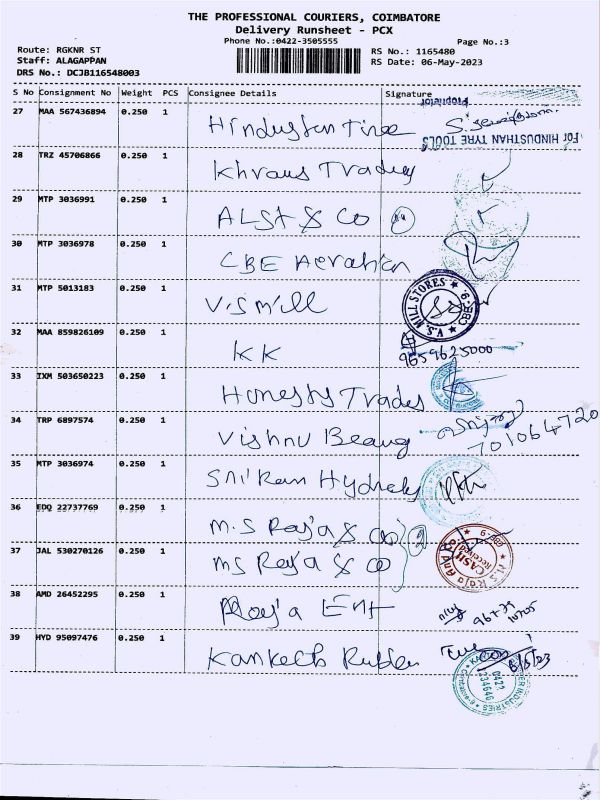 THE PROFESSIONAL COURIERS, COIMBATORE
Delivery Runsheet - PCX
Phone No.:0422-3505555 Page No.:3
Route: RGKNR ST RS No.: 1165480
Staff: ALAGAPPAN RS Date: 06-May-2023
DRS No.: DCJB116548003
S No Consignment No Weight PCS Consignee Details Signature
27 MAA 567436894 0.250 1 Hindustan Tire
For HINDUSTHAN TYRE TOOLS
Proprietor
28 TRZ 45706866 0.250 1 Khraus Trading
29 MTP 3036991 0.250 1 ALSt & Co
30 MTP 3036978 0.250 1 CBE Aeration
31 MTP 5013183 0.250 1 V.S mill
V.S. MILL STORES CBE-9
32 MAA 859826109 0.250 1 KK
9659625000
33 IXM 503650223 0.250 1 Honesty Trades
34 TRP 6897574 0.250 1 Vishnu Bearing
701064720
35 MTP 3036974 0.250 1 Sri Ram Hydrals
36 EDQ 22737769 0.250 1 M.S Raja & co 2
37 JAL 530270126 0.250 1 MS Raja & co
M.S Raja And Co CASH Received
38 AMD 26452295 0.250 1 Raja Ent
39 HYD 95097476 0.250 1 Rubber
6/5/23
0422
234646